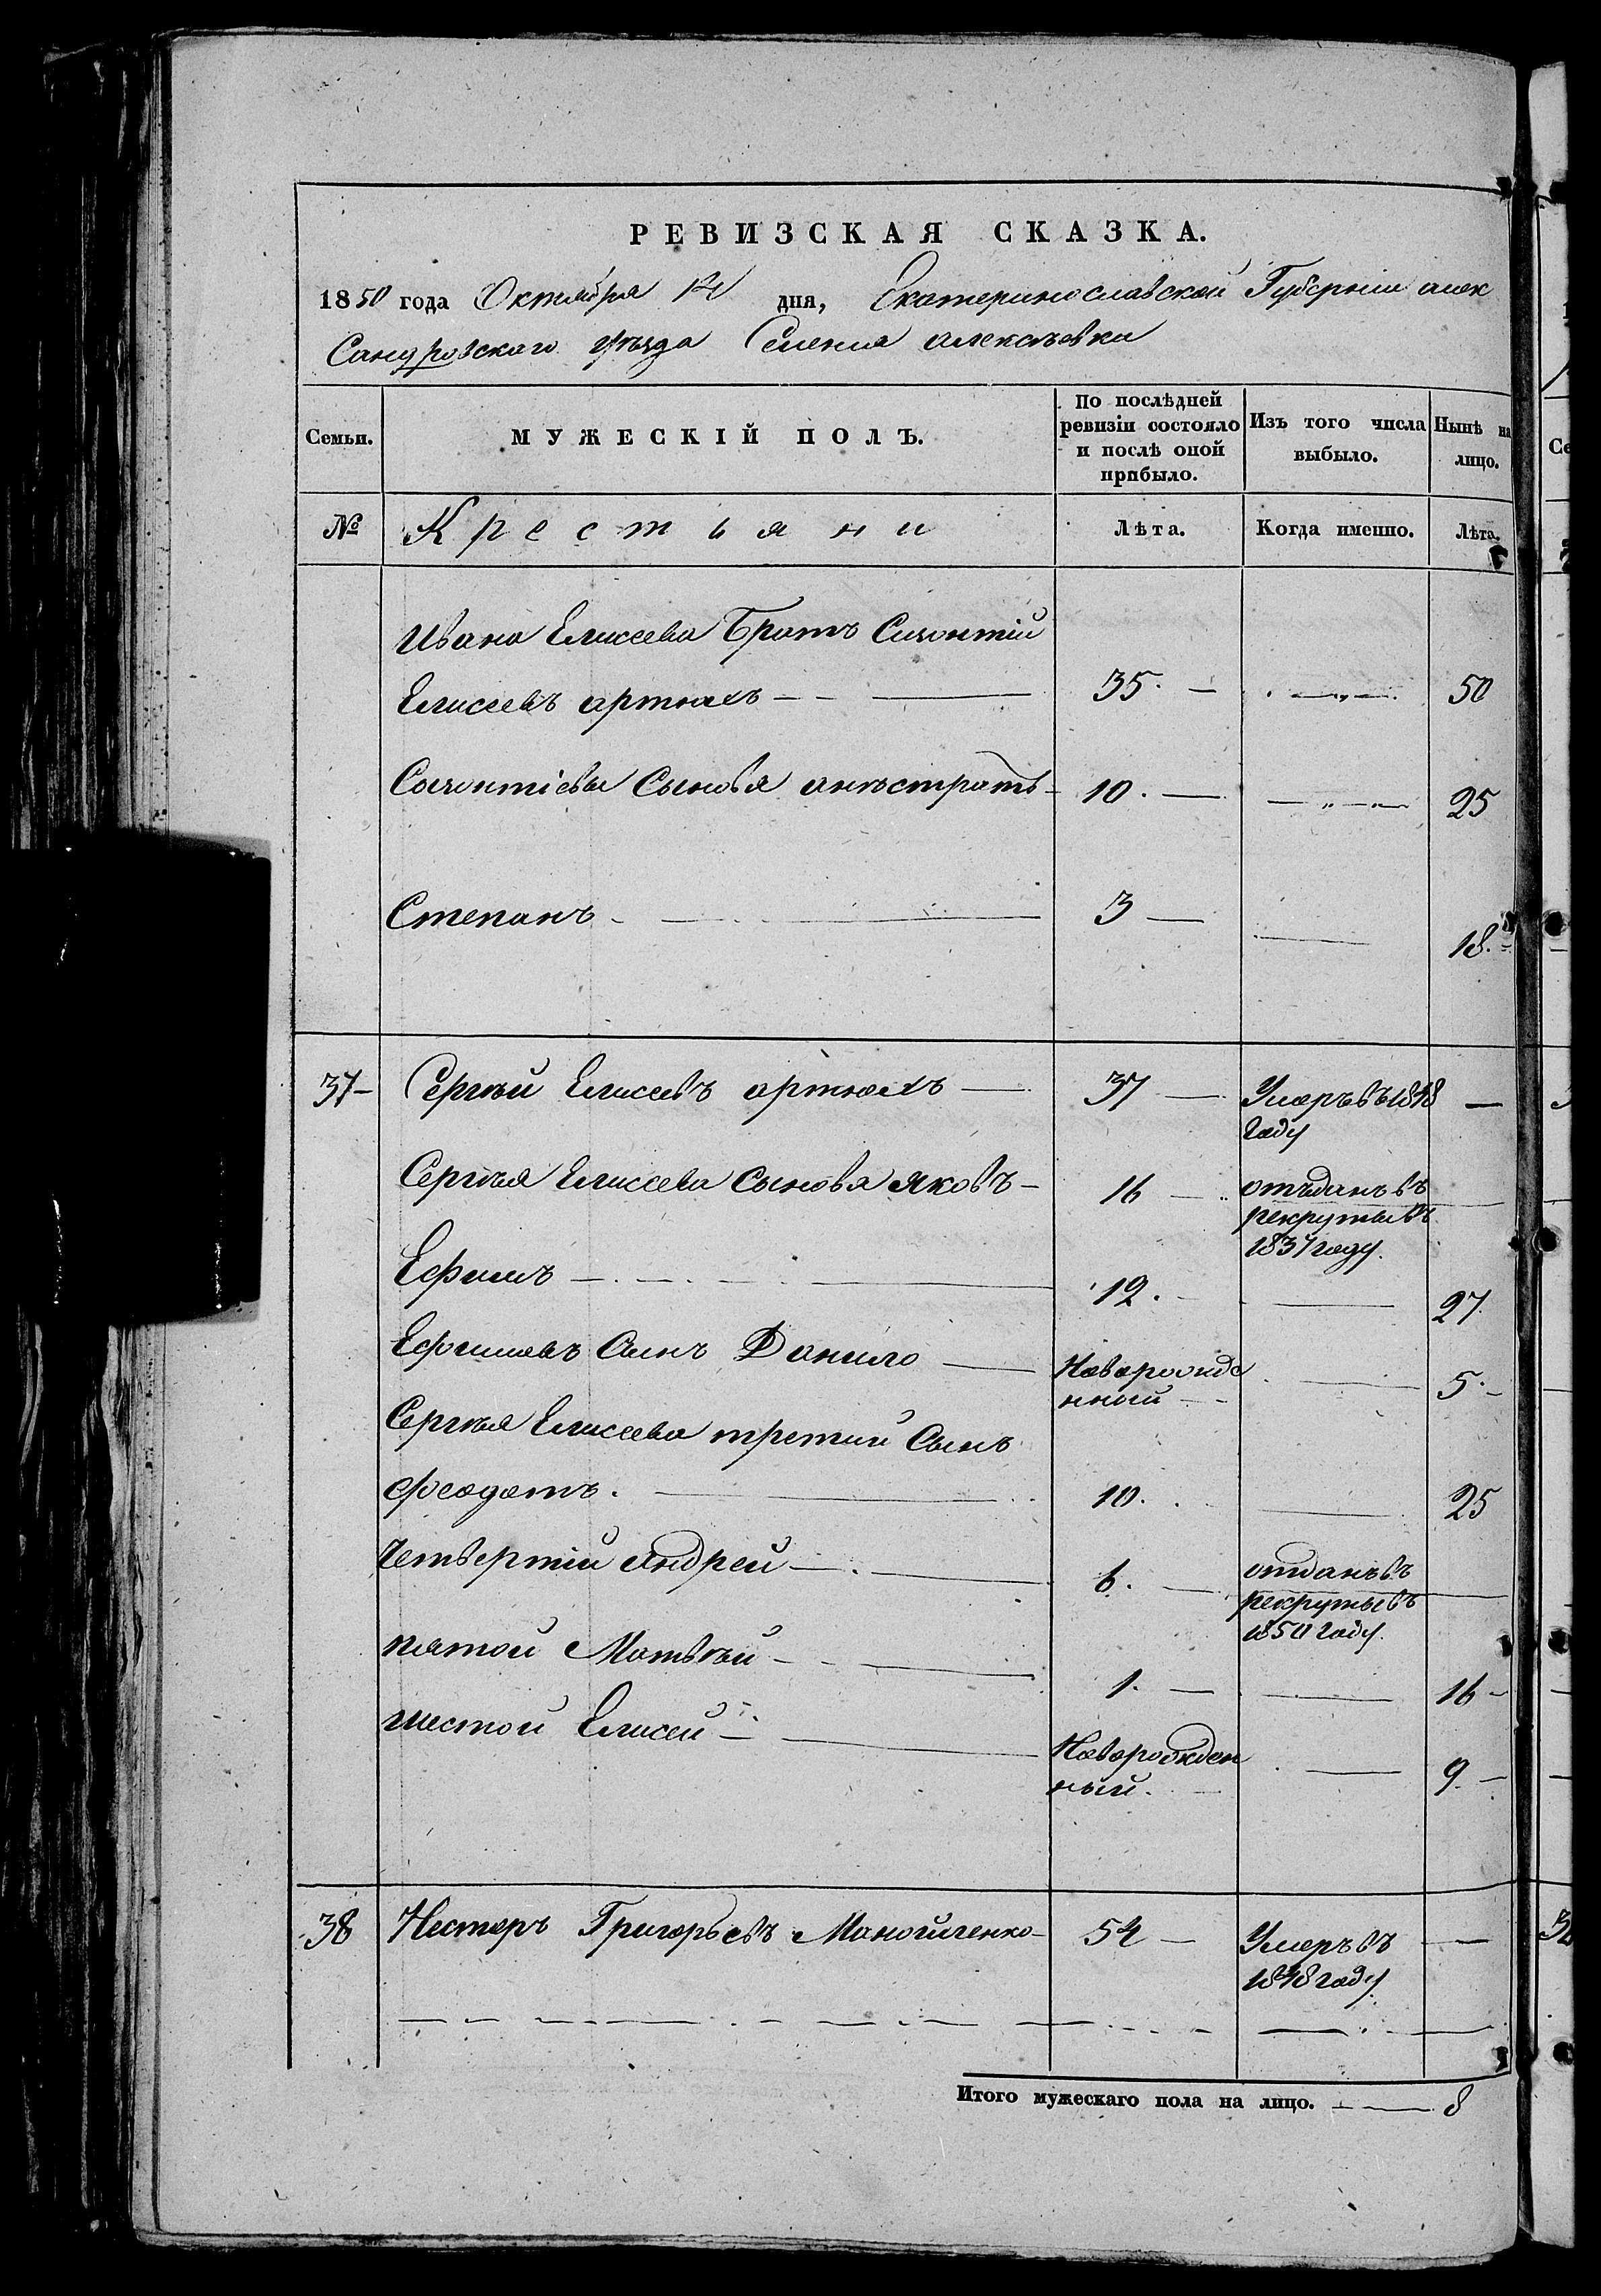 РЕВИЗСКАЯ СКАЗКА.
1850 года Октября 14 дня, Екатеринославской Губернии алек
Сандровского уѣзда Селения алексѣевки
Семьи. МУЖЕСКІЙ ПОЛЪ. По послѣдней ревизіи состояло и послѣ оной прибыло. Изъ того числа выбыло. Нынѣ на лицо.
№ Крестьяни Лѣта. Когда именно. Лѣта.
Ивана Елисеева Братъ Сизонтій
Елисеевъ артюхъ 35. 50
Сазонтіевы Сыновя анѣстратъ 10. 25
Степанъ 3 18.
37 Сергѣй Елисеевъ артюхъ 37 Умеръ въ 1848
году
Сергѣя Елисеева Сыновя яковъ 16 отъданъ въ
рекруты въ
1837 году.
Ефимъ 12. 27
Ефимовъ Сынъ Данило Новорожде
нной 5.
Сергѣя Елисеева третий Сынъ
феодотъ. 10. 25
Четвертій андрей 6. отданъ въ
рекруты въ
1850 году.
пятой Матвѣй 1. 16
шестой Елисей Новорожден
ный. 9.
38 Нестеръ Григорьевъ Маногиленко 54 Умеръ въ
1848 году
Итого мужескаго пола на лицо. 8